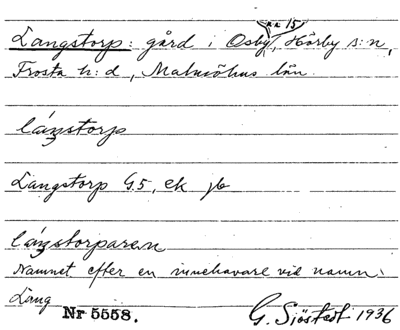 nr 15
Langstorp: gård i Osby, Hörby s:n,
Frosta h:d, Malmöhus län.
láŋstorp
Langstorp G.5, ek jb
láŋstorparen
Namnet efter en innehavare vid namn
Lang
Nr 5558.
G. Sjöstedt 1936